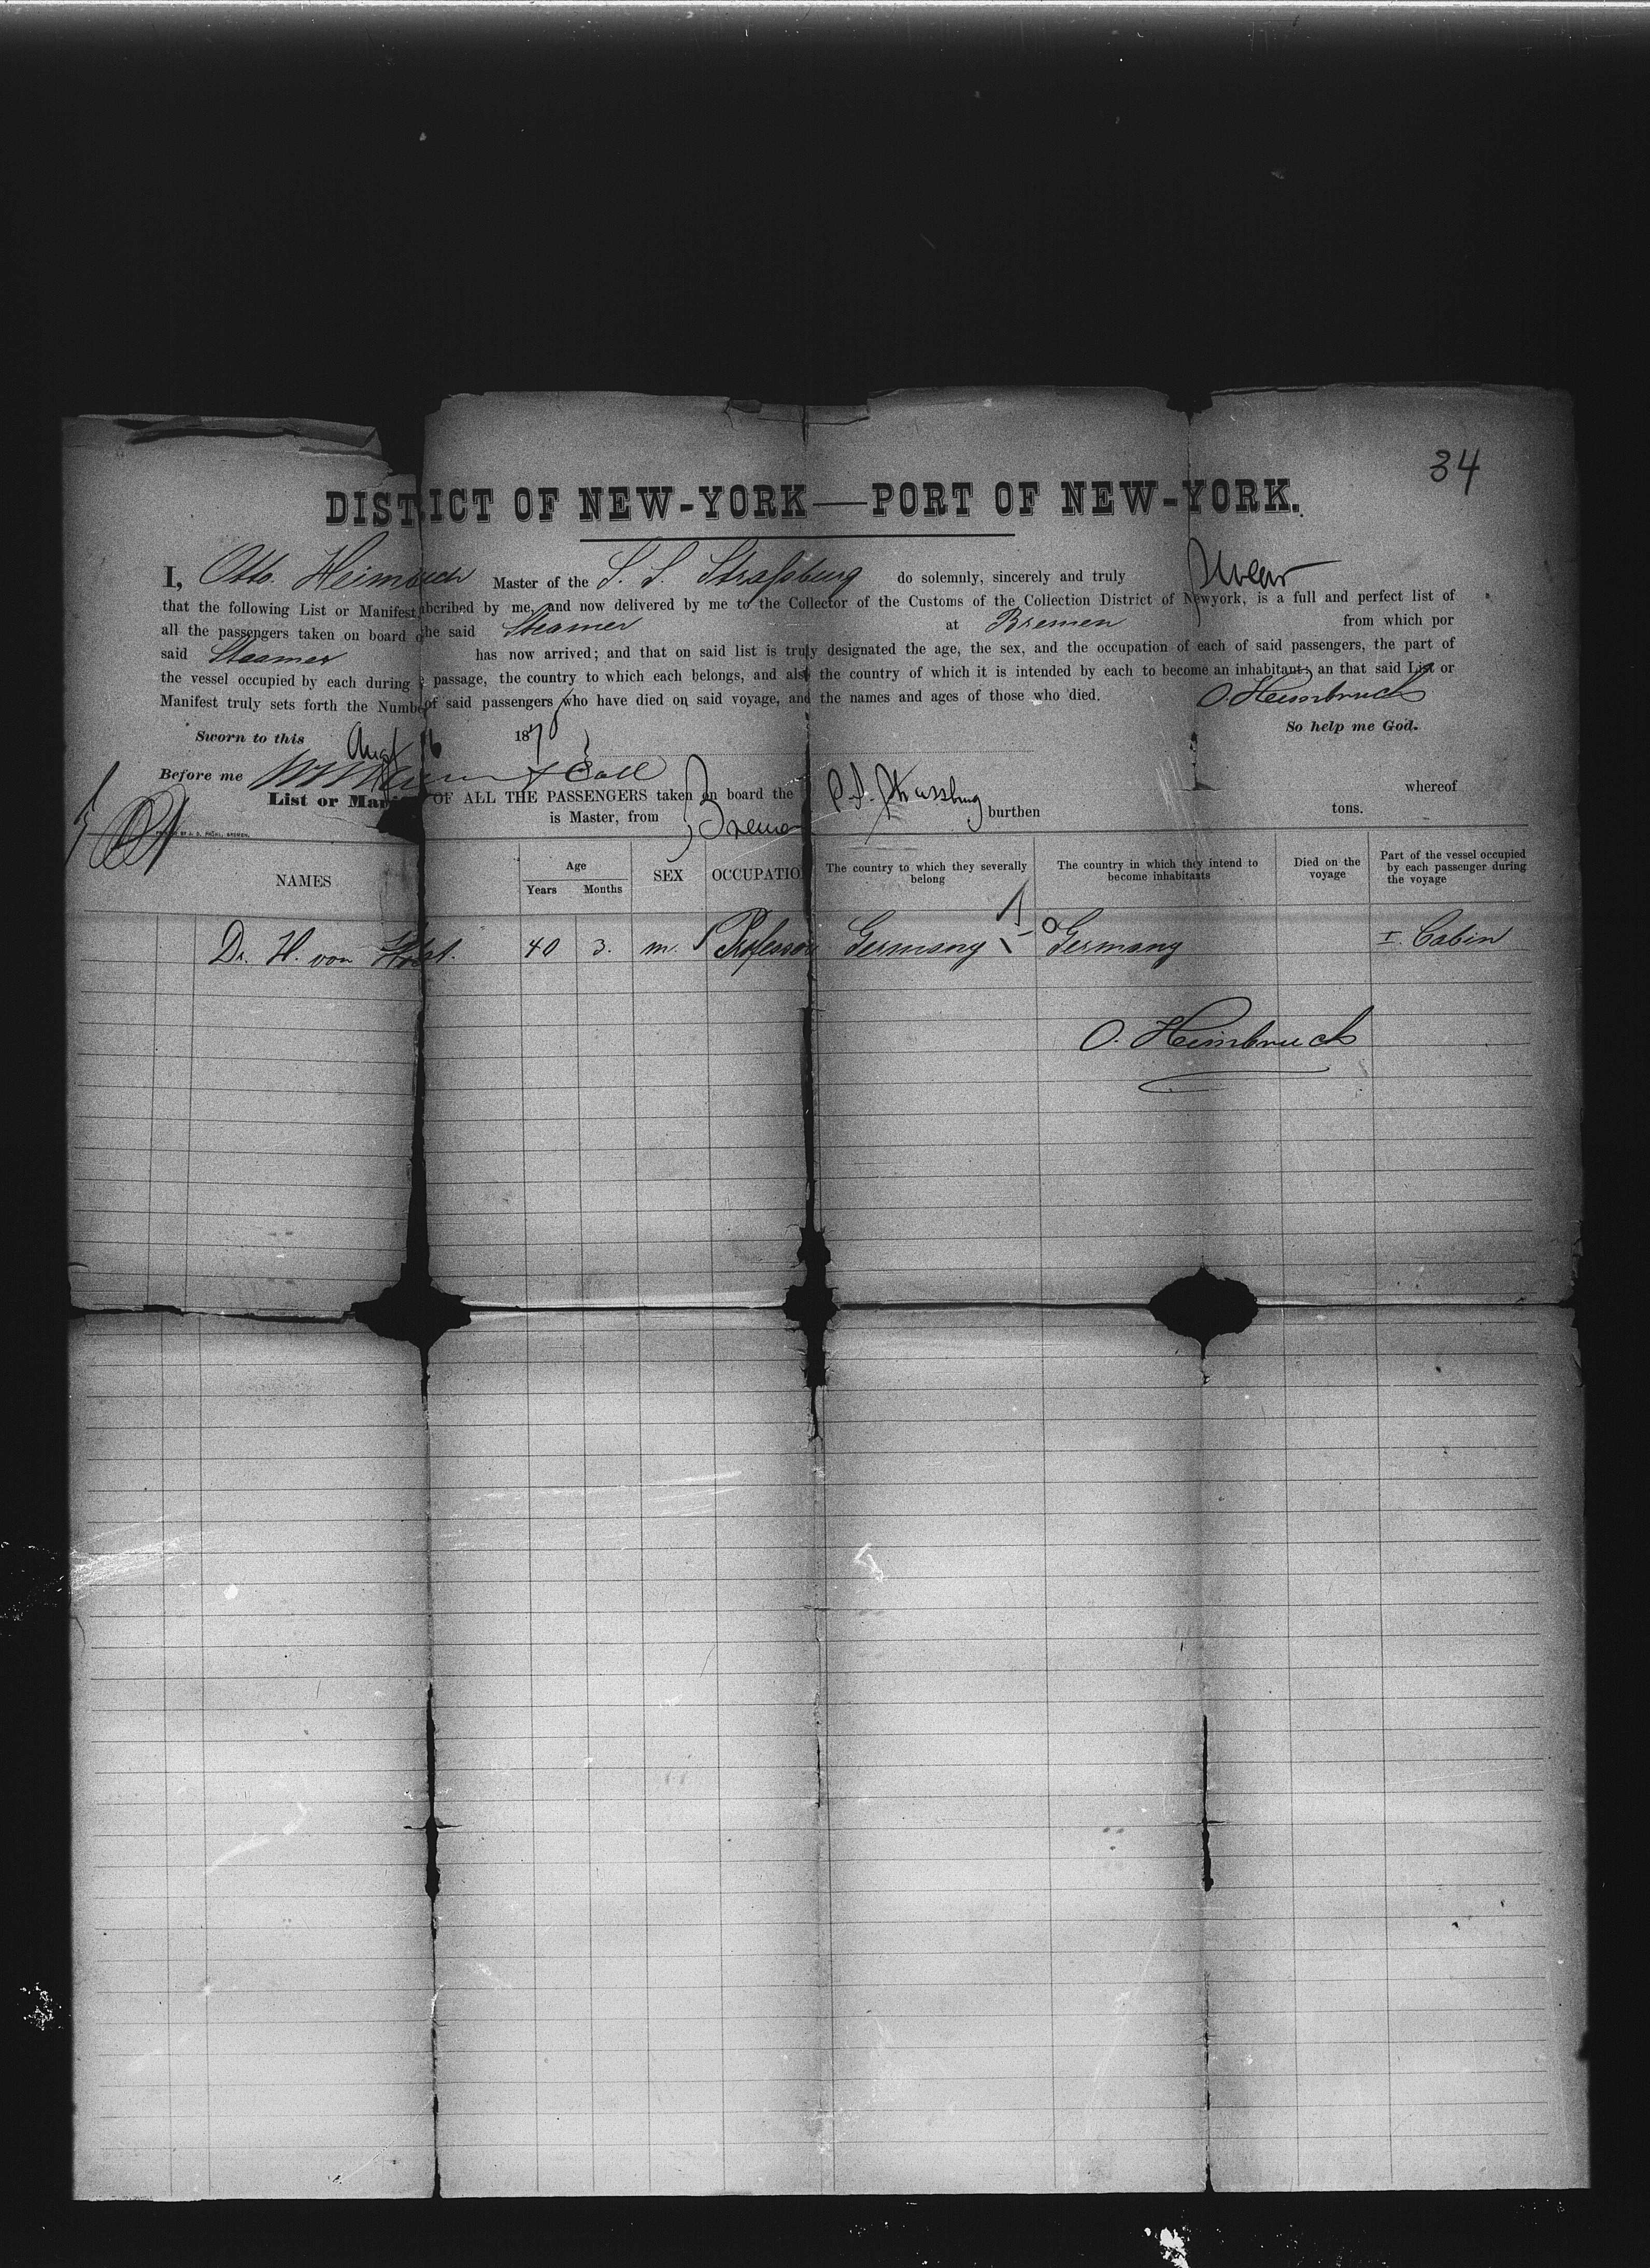 34
DISTRICT OF NEW-YORK—PORT OF NEW-YORK.
I, Otto Heimbruch Master of the S. S. Straßburg do solemnly, sincerely and truly swear
that the following List or Manifest, bcribed by me, and now delivered by me to the Collector of the Customs of the Collection District of Newyork, is a full and perfect list of
all the passengers taken on board o he said Steamer at Bremen from which por
said Steamer has now arrived; and that on said list is truly designated the age, the sex, and the occupation of each of said passengers, the part of
the vessel occupied by each during passage, the country to which each belongs, and also the country of which it is intended by each to become an inhabitant; an that said List or
Manifest truly sets forth the Numbe of said passengers who have died on said voyage, and the names and ages of those who died. O. Heimbruch
Sworn to this Augt 1878 So help me God.
Before me
List or Man OF ALL THE PASSENGERS taken on board the S.S. Strassburg whereof
is Master, from Bremen burthen tons.
NAMES Age Years Months SEX OCCUPATION The country to which they severally belong The country in which they intend to become inhabitants Died on the voyage Part of the vessel occupied by each passenger during the voyage
Dr. H. von Holst. 40 3. m. Professor Germany Germany I Cabin
O. Heimbruch